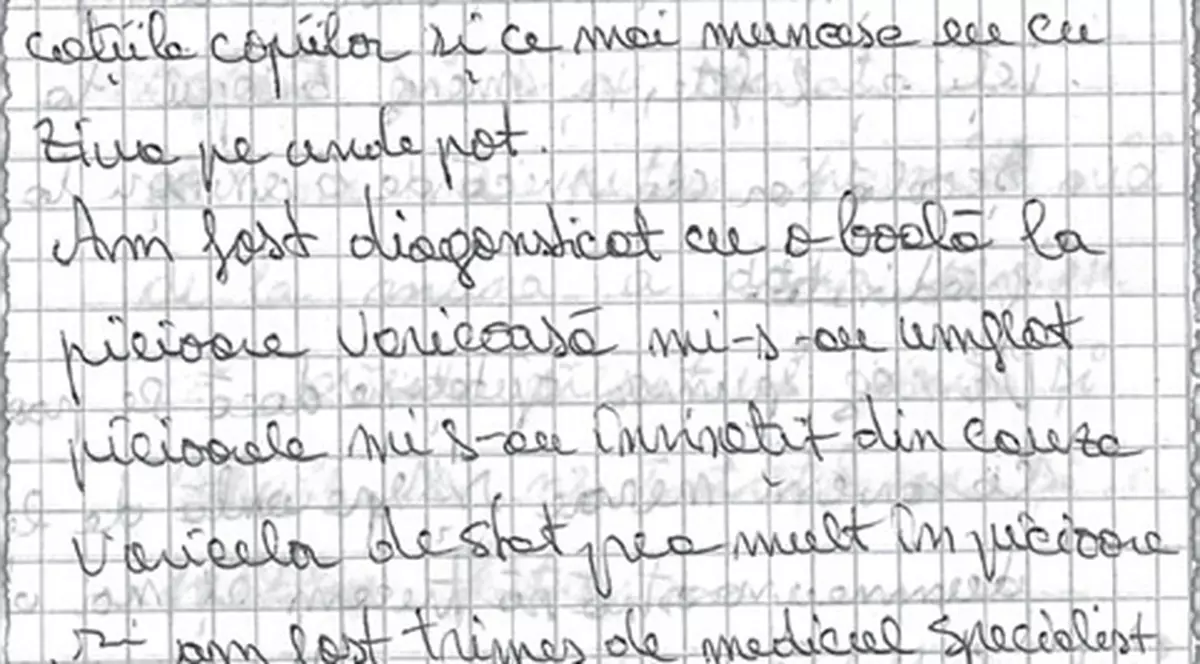 cațiile copiilor și ce mai muncesc eu cu
ziua pe unde pot.
Am fost diagonsticat cu o boală la
picioare varicoasă mi-s-au umflat
picioarele mi s-au învinețit din cauza
varicelor de stat prea mult în picioare
și am fost trimes de medicul specialist